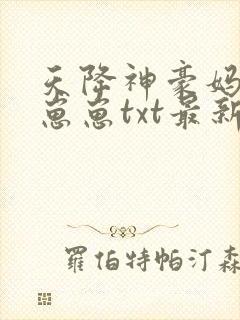 天降神豪妈
崽崽txt最新
羅伯特帕汀森